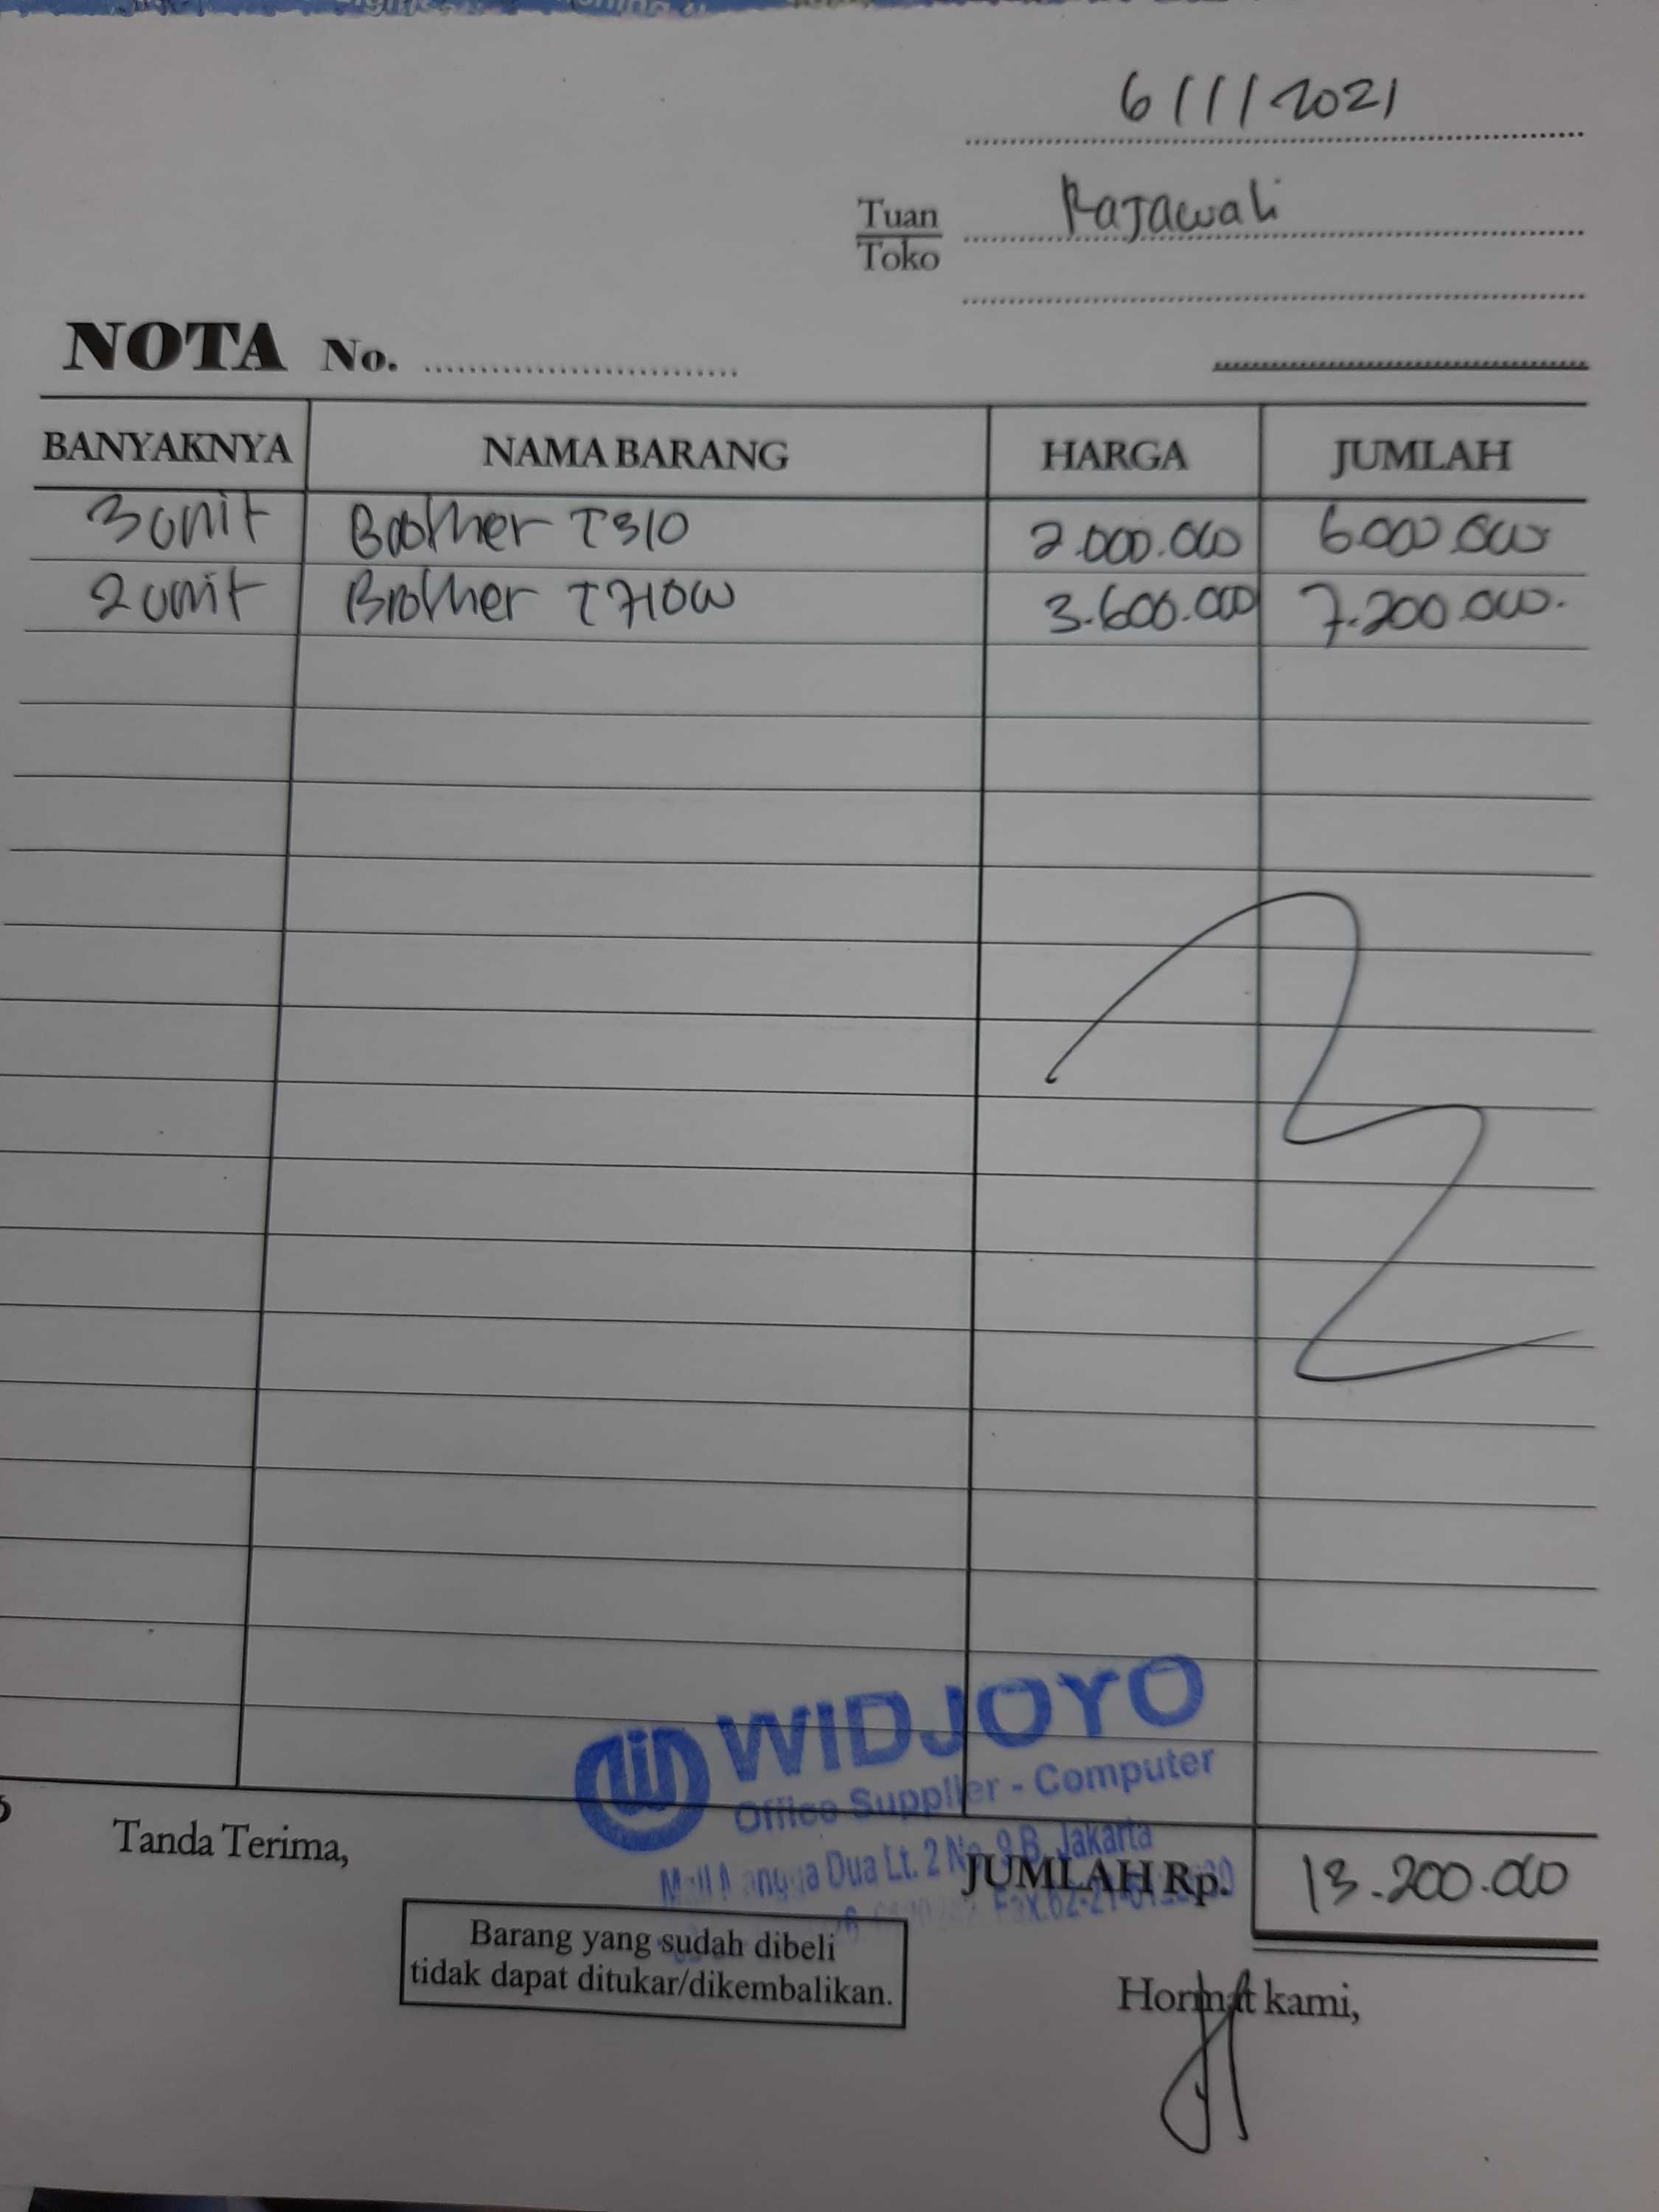 6/1/2021
Tuan
Toko
Rajawali
NOTA No.
BANYAKNYA NAMA BARANG HARGA JUMLAH
3 unit Brother T310 2.000.000 6.000.000
2 unit Brother T710W 3.600.000 7.200.000.
WIDJOYO
Office Supplier - Computer
Dua Lt. 2 No. 9 B, Jakarta
Tanda Terima,
JUMLAH Rp. 13.200.000
Barang yang sudah dibeli
tidak dapat ditukar/dikembalikan.
Hormat kami,